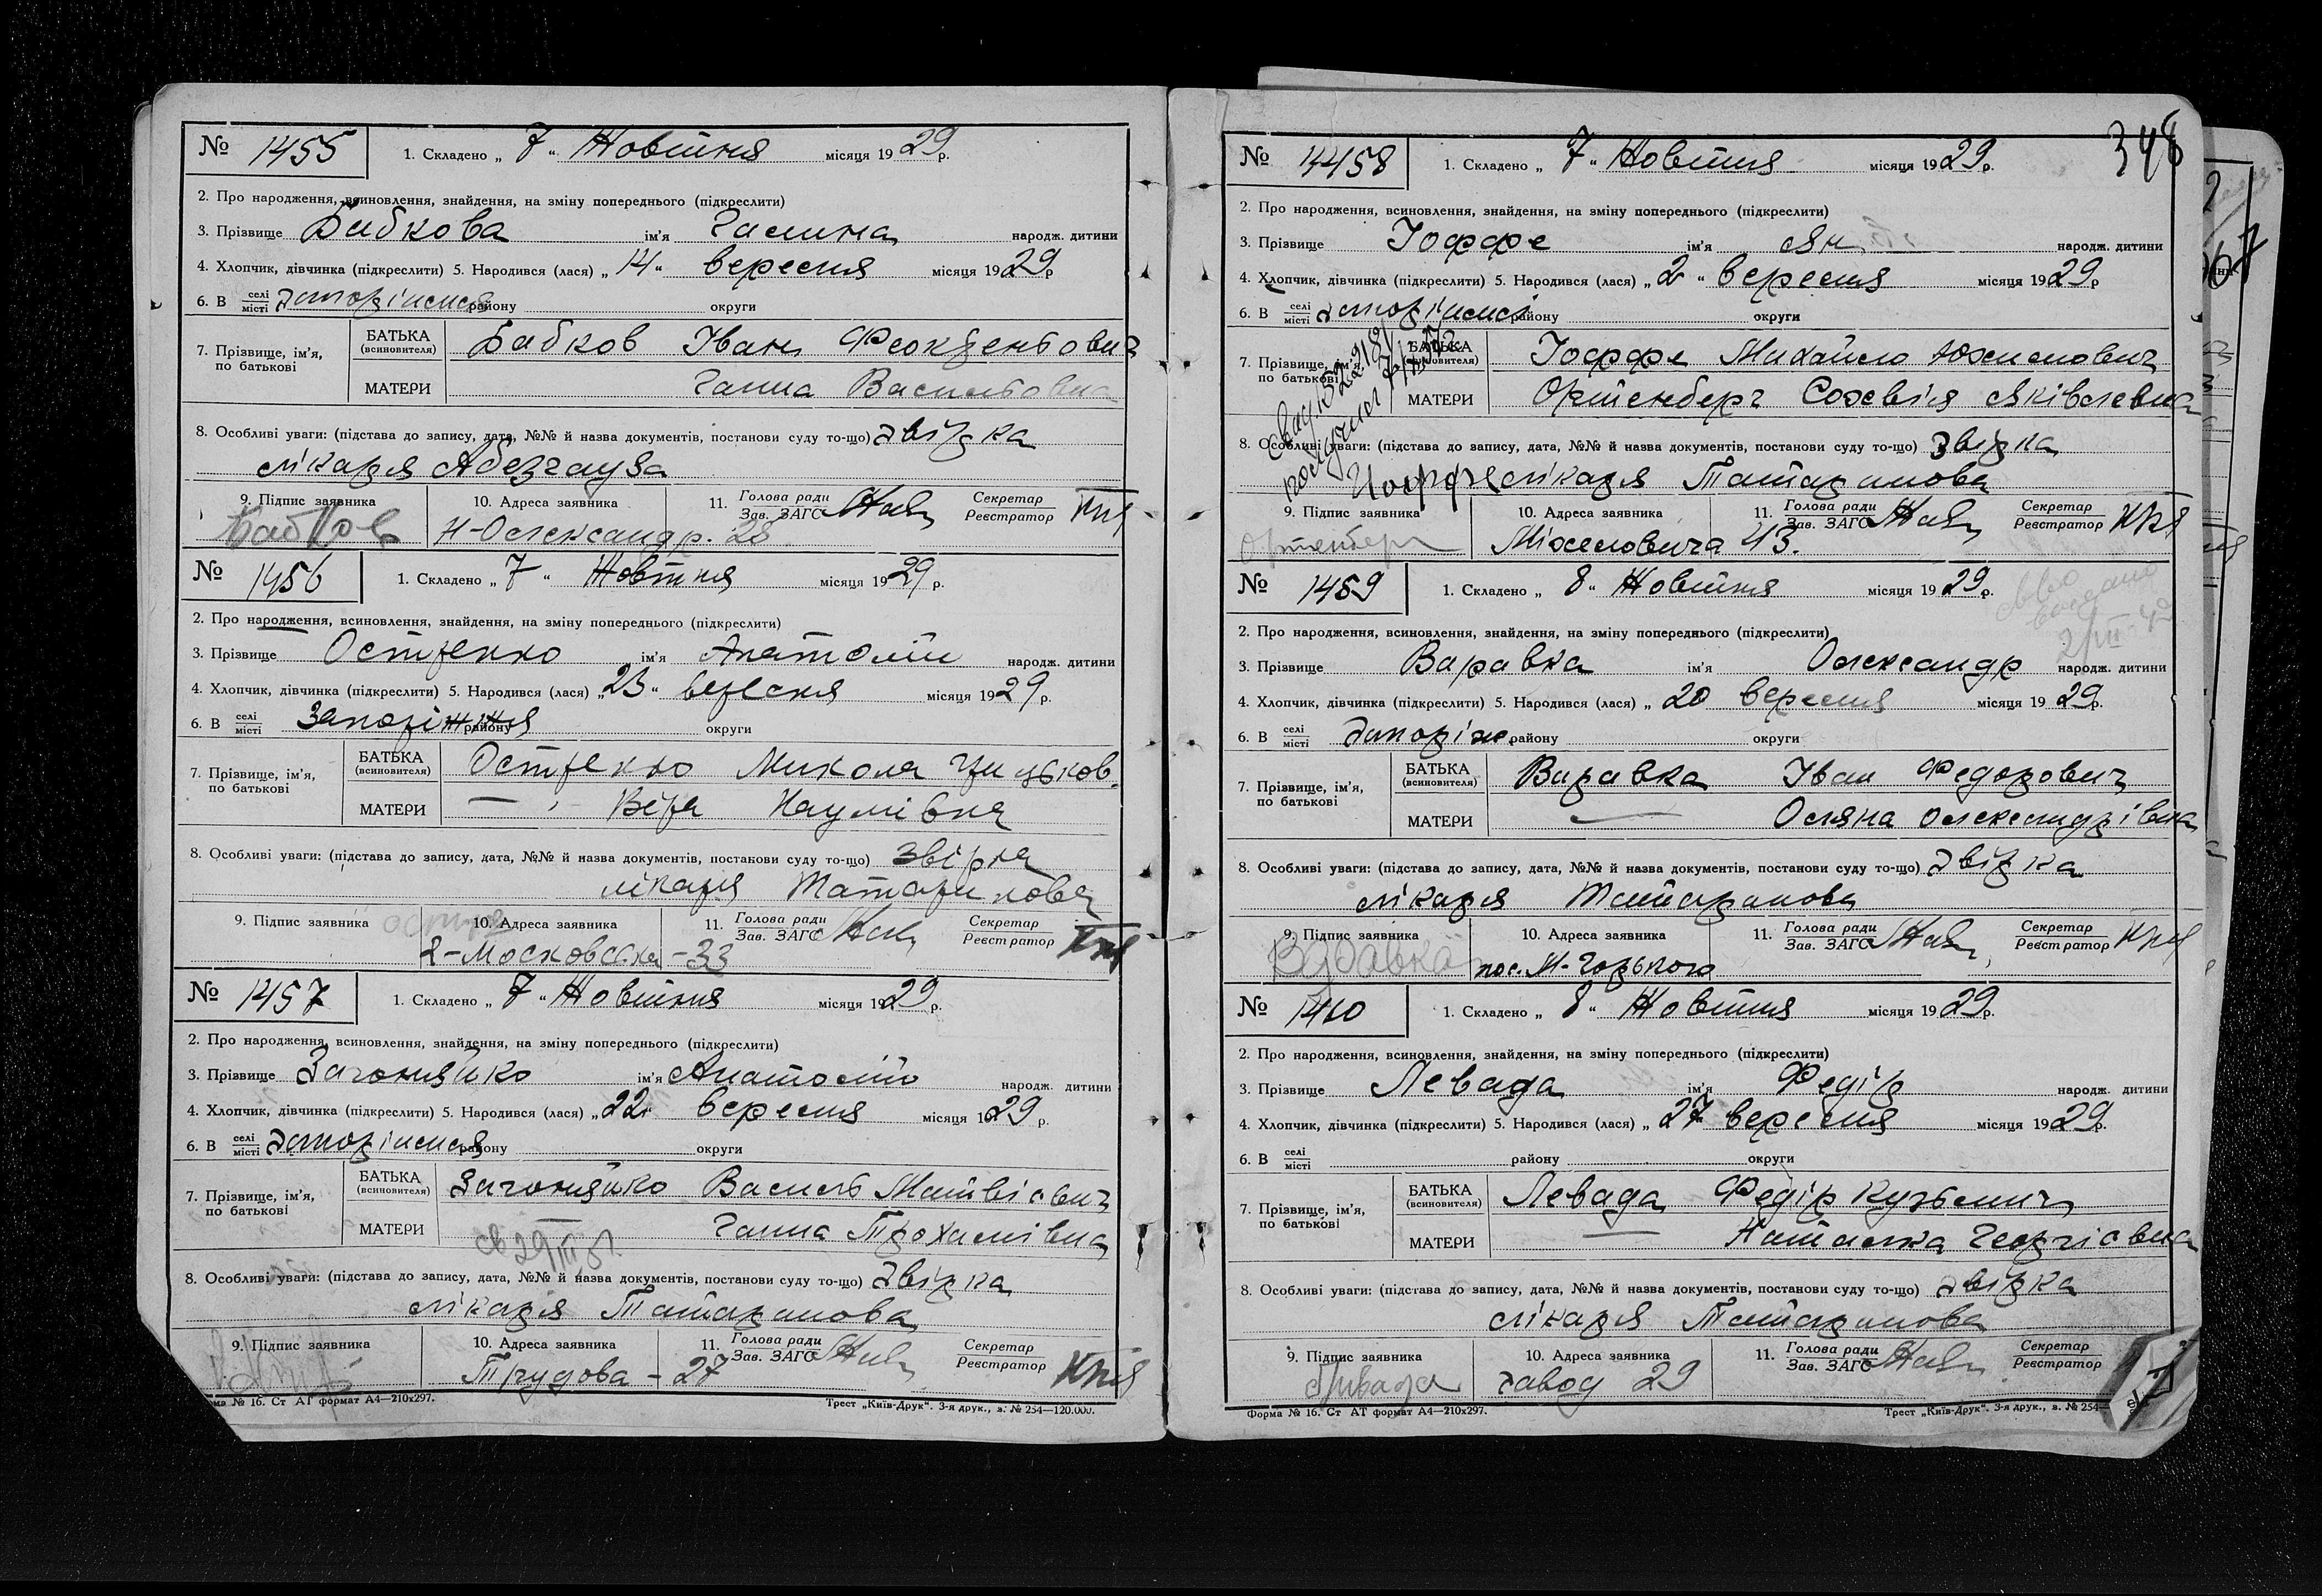 № 1455 1. Складено „ 7 " Жовтня місяця 1929 р.
2. Про народження, всиновлення, знайдення, на зміну попереднього (підкреслити)
3. Прізвище Бабкова ім'я Галина народж. дитини
4. Хлопчик, дівчинка (підкреслити) 5. Народився (лася) „ 14 " вересня місяця 1929 р
6. В селі місті Запоріжжя району округи
7. Прізвище, ім'я, по батькові БАТЬКА (всиновителя) Бабков Іван
МАТЕРИ Ганна Васильовна
8. Особливі уваги: (підстава до запису, дата, №№ й назва документів, постанови суду то-що) звідка
лікаря Абезгауза
9. Підпис заявника 10. Адреса заявника 11. Голова ради Зав. ЗАГС Секретар Реєстратор
Бабков Н-Олександр. 28
№ 1456 1. Складено „ 7 " Жовтня місяця 1929 р.
2. Про народження, всиновлення, знайдення, на зміну попереднього (підкреслити)
3. Прізвище Остренко ім'я Анатолій народж. дитини
4. Хлопчик, дівчинка (підкреслити) 5. Народився (лася) „ 23 " вересня місяця 1929 р.
6. В селі місті Запоріжжя району округи
7. Прізвище, ім'я, по батькові БАТЬКА (всиновителя) Остренко Микола
МАТЕРИ — „ — Віра Наумівна
8. Особливі уваги: (підстава до запису, дата, №№ й назва документів, постанови суду то-що) звідка
лікаря Татаринова
9. Підпис заявника 10. Адреса заявника 11. Голова ради Зав. ЗАГС Секретар Реєстратор
2-Московська - 33
№ 1457 1. Складено „ 7 " Жовтня місяця 1929 р.
2. Про народження, всиновлення, знайдення, на зміну попереднього (підкреслити)
3. Прізвище Загоняйко ім'я Анатолій народж. дитини
4. Хлопчик, дівчинка (підкреслити) 5. Народився (лася) „ 22 " вересня місяця 1929 р.
6. В селі місті Запоріжжя району округи
7. Прізвище, ім'я, по батькові БАТЬКА (всиновителя) Загоняйко Василь Матвієвич
МАТЕРИ — Ганна Трохимівна
8. Особливі уваги: (підстава до запису, дата, №№ й назва документів, постанови суду то-що) звідка
лікаря Татаринова
9. Підпис заявника 10. Адреса заявника 11. Голова ради Зав. ЗАГС Секретар Реєстратор
Трудова - 27
ма № 16. Ст АТ формат А4—210х297. Трест „Київ-Друк". 3-я друк., з. № 254—120.000.
348
№ 1458 1. Складено „ 7 " Жовтня місяця 1929 р.
2. Про народження, всиновлення, знайдення, на зміну попереднього (підкреслити)
3. Прізвище Іоффе ім'я Ян народж. дитини
4. Хлопчик, дівчинка (підкреслити) 5. Народився (лася) „ 2 " вересня місяця 1929 р
6. В селі місті Запоріжжі району округи
7. Прізвище, ім'я, по батькові БАТЬКА (всиновителя) Іоффе Михайло Юхимович
МАТЕРИ Ортенберг Софвія Яківлевна
8. Особливі уваги: (підстава до запису, дата, №№ й назва документів, постанови суду то-що) звідка
Иоффе лікаря Татаринова
9. Підпис заявника 10. Адреса заявника 11. Голова ради Зав. ЗАГС Секретар Реєстратор
Ортенберг Міхеловича 43.
№ 1459 1. Складено „ 8 " Жовтня місяця 1929 р.
2. Про народження, всиновлення, знайдення, на зміну попереднього (підкреслити)
3. Прізвище Варавка ім'я Олександр народж. дитини
4. Хлопчик, дівчинка (підкреслити) 5. Народився (лася) „ 20 вересня місяця 1929 р.
6. В селі місті Запоріж. району округи
7. Прізвище, ім'я, по батькові БАТЬКА (всиновителя) Варавка Іван Федорович
МАТЕРИ — Оляна Олександрівна
8. Особливі уваги: (підстава до запису, дата, №№ й назва документів, постанови суду то-що) звідка
лікаря Татаринова
9. Підпис заявника 10. Адреса заявника 11. Голова ради Зав. ЗАГС Секретар Реєстратор
Варавка пос. М-Горького
№ 1460 1. Складено „ 8 " Жовтня місяця 1929 р.
2. Про народження, всиновлення, знайдення, на зміну попереднього (підкреслити)
3. Прізвище Левада ім'я Федір народж. дитини
4. Хлопчик, дівчинка (підкреслити) 5. Народився (лася) „ 27 вересня місяця 1929 р.
6. В селі місті району округи
7. Прізвище, ім'я, по батькові БАТЬКА (всиновителя) Левада Федір Кузьмич
МАТЕРИ — Наталка Георгієвна
8. Особливі уваги: (підстава до запису, дата, №№ й назва документів, постанови суду то-що) звідка
лікаря Татаринова
9. Підпис заявника 10. Адреса заявника 11. Голова ради Зав. ЗАГС Секретар Реєстратор
Левада завод 29
Форма № 16. Ст АТ формат А4—210х297. Трест „Київ-Друк". 3-я друк., з. № 254—